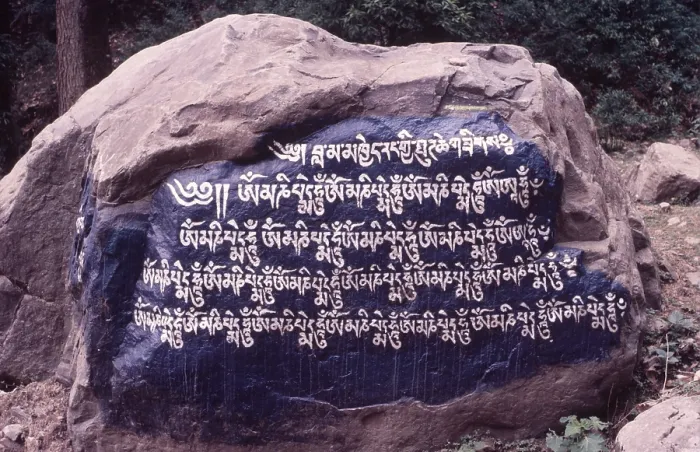 ༄། བླ་མ་
༄༅།། ཨོཾ་མ་ཎི་པདྨེ་ཧཱུྃ་ཨོཾ་མ་ཎི་པདྨེ་ཧཱུྃ་ཨོཾ་མ་ཎི་པདྨེ་ཧཱུྃ་ཨོཾ་ཨཱཿ་ཧཱུྃ༔
ཨོཾ་མ་ཎི་པདྨེ་ཧཱུྃ་ཨོཾ་མ་ཎི་པདྨེ་ཧཱུྃ་ཨོཾ་མ་ཎི་པདྨེ་ཧཱུྃ་ཨོཾ་མ་ཎི་པདྨེ་ཧཱུྃ་ཨོཾ་ཨཱཿ་ཧཱུྃ༔
ཨོཾ་མ་ཎི་པདྨེ་ཧཱུྃ་ཨོཾ་མ་ཎི་པདྨེ་ཧཱུྃ་ཨོཾ་མ་ཎི་པདྨེ་ཧཱུྃ་ཨོཾ་མ་ཎི་པདྨེ་ཧཱུྃ་ཨོཾ་མ་ཎི་པདྨེ་ཧཱུྃ་ཨོཾ་མ་ཎི་པདྨེ་ཧཱུྃ༔
ཨོཾ་མ་ཎི་པདྨེ་ཧཱུྃ་ཨོཾ་མ་ཎི་པདྨེ་ཧཱུྃ་ཨོཾ་མ་ཎི་པདྨེ་ཧཱུྃ་ཨོཾ་མ་ཎི་པདྨེ་ཧཱུྃ་ཨོཾ་མ་ཎི་པདྨེ་ཧཱུྃ་ཨོཾ་མ་ཎི་པདྨེ་ཧཱུྃ་ཨོཾ་མ་ཎི་པདྨེ་ཧཱུྃ༔